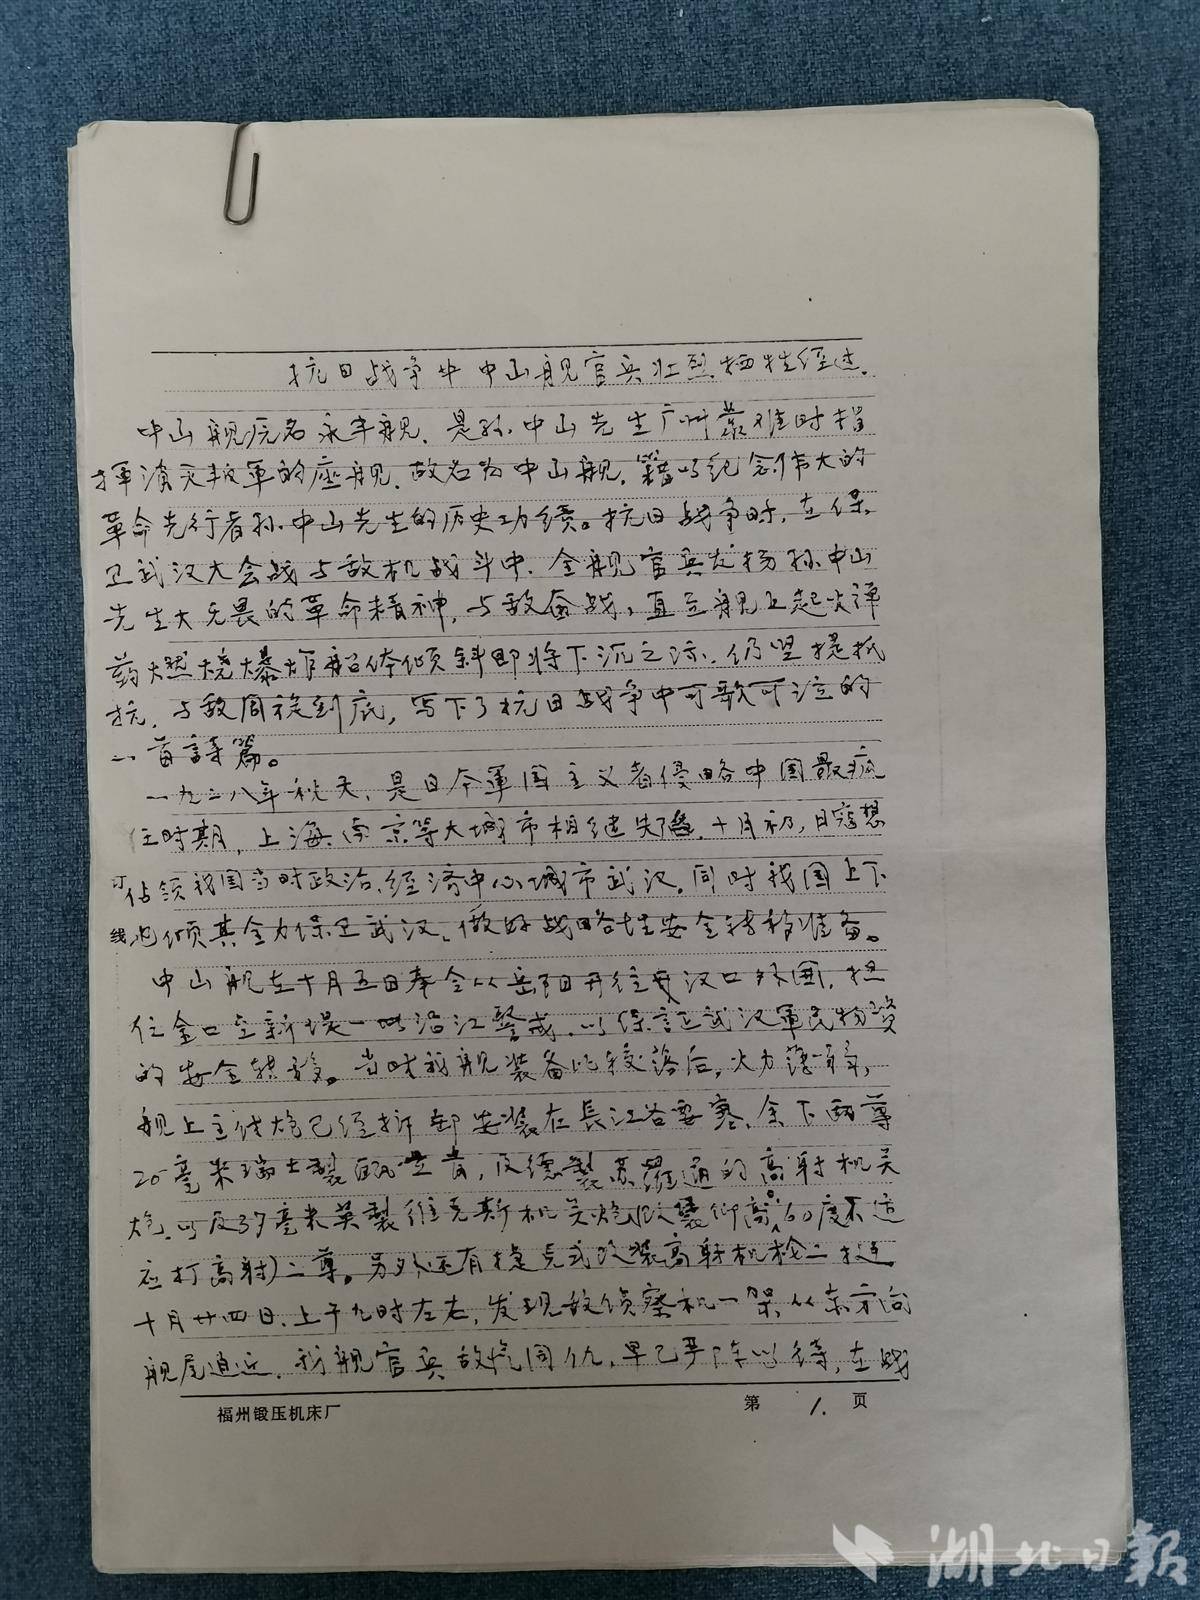 抗日战争中中山舰官兵壮烈牺牲经过.
中山舰原名永丰舰. 是孙中山先生广州蒙难时指
挥消灭叛军的座舰. 故名为中山舰. 籍以纪念伟大的
革命先行者孙中山先生的历史功绩。抗日战争时. 在保
卫武汉大会战与敌机战斗中. 全舰官兵发扬孙中山
先生大无畏的革命精神, 与敌奋战, 直至舰上起火弹
药燃烧爆炸船体倾斜即将下沉之际. 仍坚持抵
抗, 与敌周旋到底, 写下了抗日战争中可歌可泣的
一首詩篇。
一九三八年秋天, 是日本軍国主义者侵略中国最疯
狂时期, 上海、南京等大城市相继失陷. 十月初, 日寇想
佔领我国当时政治、经济中心城市武汉. 同时我国上下
也倾其全力保卫武汉、做好战略性安全转移准备。
中山舰在十月五日奉令从岳阳开往武汉口外围, 担
任金口至新堤一带沿江警戒. 以保証武汉軍民物资
的安全转移。当时我舰装备比较落后, 火力薄弱,
舰上主炮已经拆卸安装在長江各要塞, 余下两尊
20毫米瑞士製, 及德製苏罗通的高射机关
炮. 以及37毫米英製维克斯机关炮(仰高60度不适
应打高射)二尊。另外还有捷克式改装高射机枪二挺
十月廿四日. 上午九时左右, 发现敌侦察机一架从东方向
舰尾迫近. 我舰官兵敌忾同仇, 早已严阵以待, 在战
订
线
福州锻压机床厂
第 1. 页
湖北日報